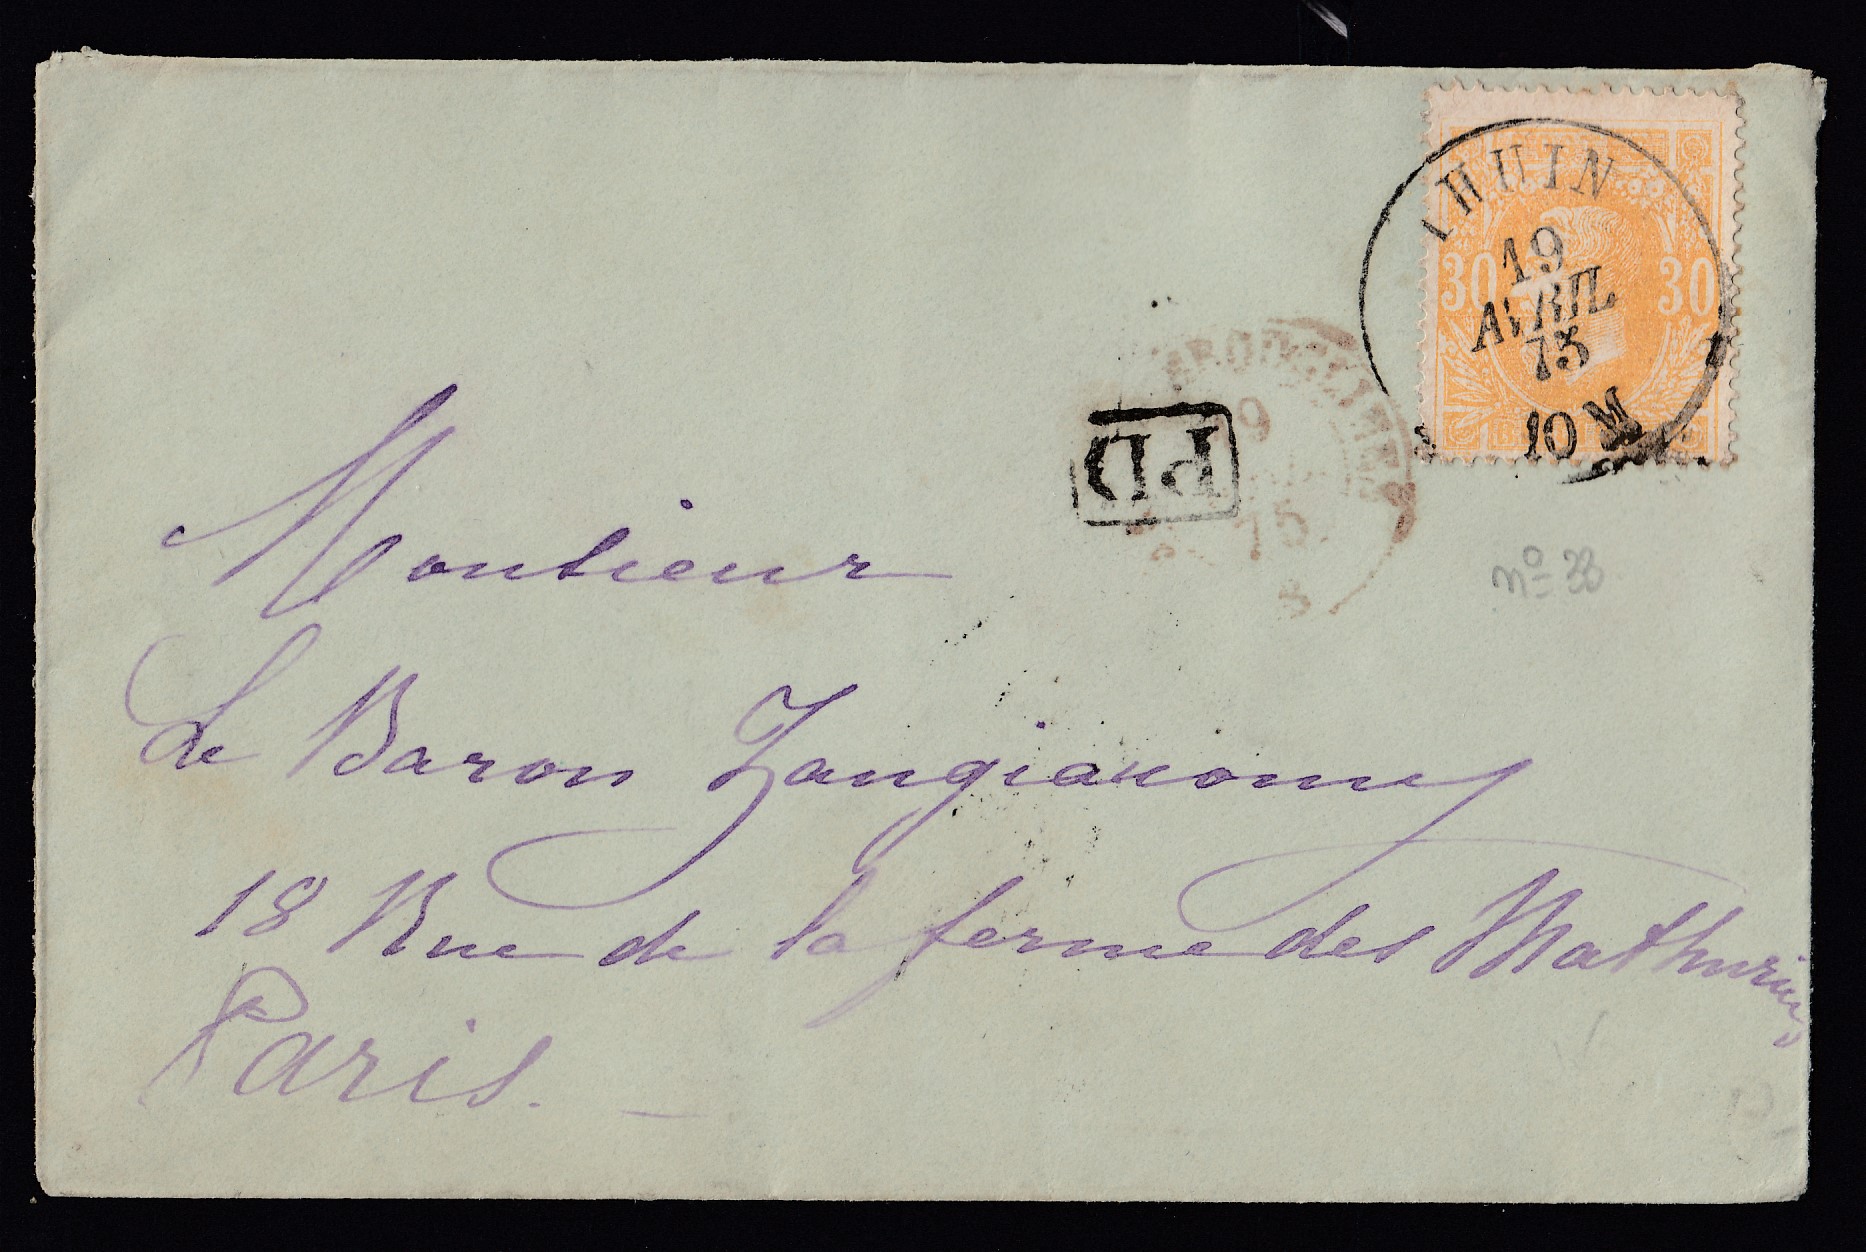 THUIN
19
AVRIL
75
10 M
30 30
PD
9
75
nº 38
Monsieur
Le Baron Zangiacomy
18 Rue de la ferme des Mathurins
Paris.